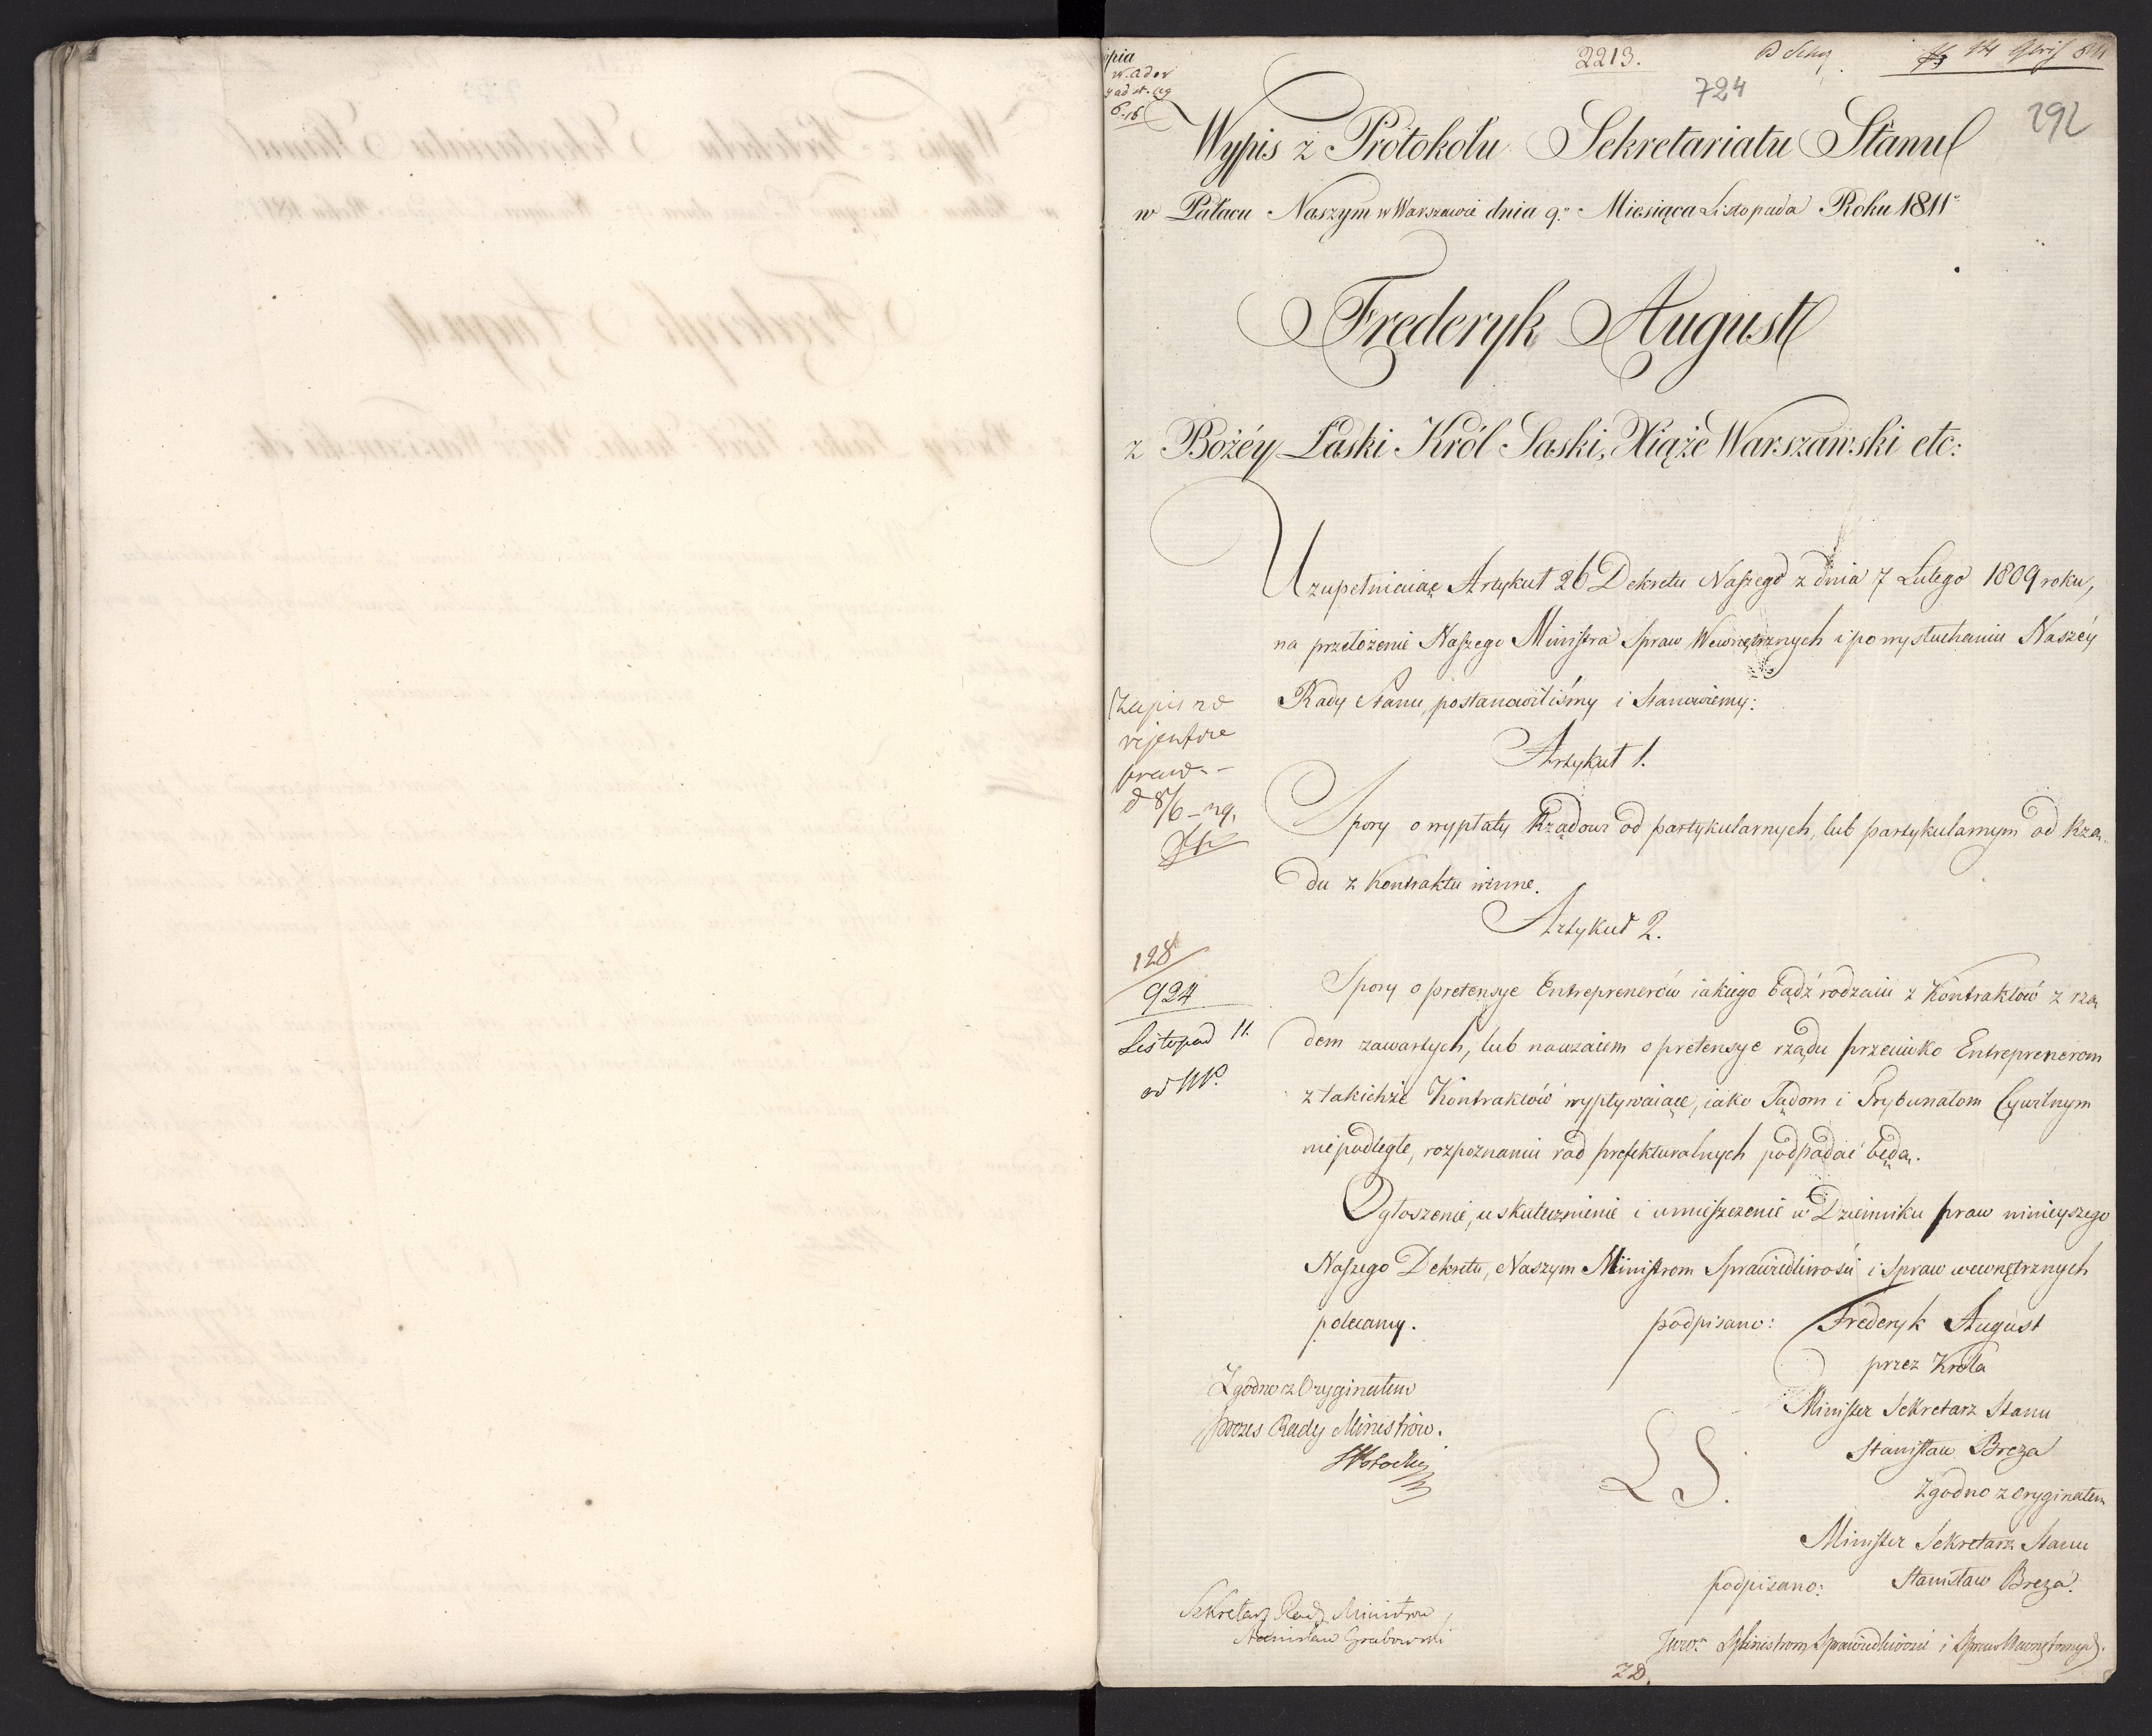 2213.
724
292
Wypis z Protokołu Sekretariatu Stanu
w Pałacu Naszym w Warszawie dnia 9º Miesiąca Listopada Roku 1811º
Frederyk August
z Bożéy Łaski Król Saski, Xiąże Warszawski etc:
Uzupełniaiąc Artykuł 26 Dekretu Naszego z dnia 7 Lutego 1809 roku,
na przełożenie Naszego Ministra Spraw Wewnętrznych i po wysłuchaniu Naszéy
Rady Stanu, postanowiliśmy i Stanowiemy:
Artykuł 1.
Spory o wypłaty Rządowi od partykularnych, lub partykularnym od Rzą„
du z Kontraktu winne.
Artykuł 2.
Spory o pretensye Entreprenerów iakiego bądź rodzaiu z Kontraktów z rzą
dem zawartych, lub nawzaiem o pretensye rządu przeciwko Entreprenerom
z takichże Kontraktów wypływaiące, iako Sądom i Trybunałom Cywilnym
niepodległe, rozpoznaniu rad prefekturalnych podpadać będą.
Ogłoszenie, uskutecznienie i umieszczenie w Dzienniku praw ninieyszego
Naszego Dekretu, Naszym Ministrom Sprawiedliwości i Spraw wewnętrznych
polecamy.
podpisano: Frederyk August
przez Króla
Minister Sekretarz Stanu
Stanisław Breza
LS.
Zgodno z oryginałem
Minister Sekretarz Stanu
podpisano: Stanisław Breza.
Zgodno z Oryginałem
Prezes Rady Ministrów.
Sekretarz Rady Ministrów
Stanisław Grabowski
Ministrom Sprawiedliwości i Spraw Wewnętrznych.
128
924
Listopad 11.